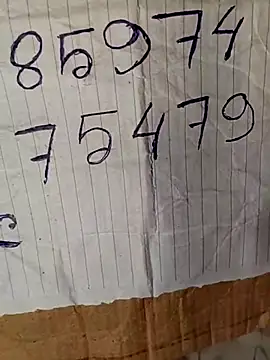 85974
75479